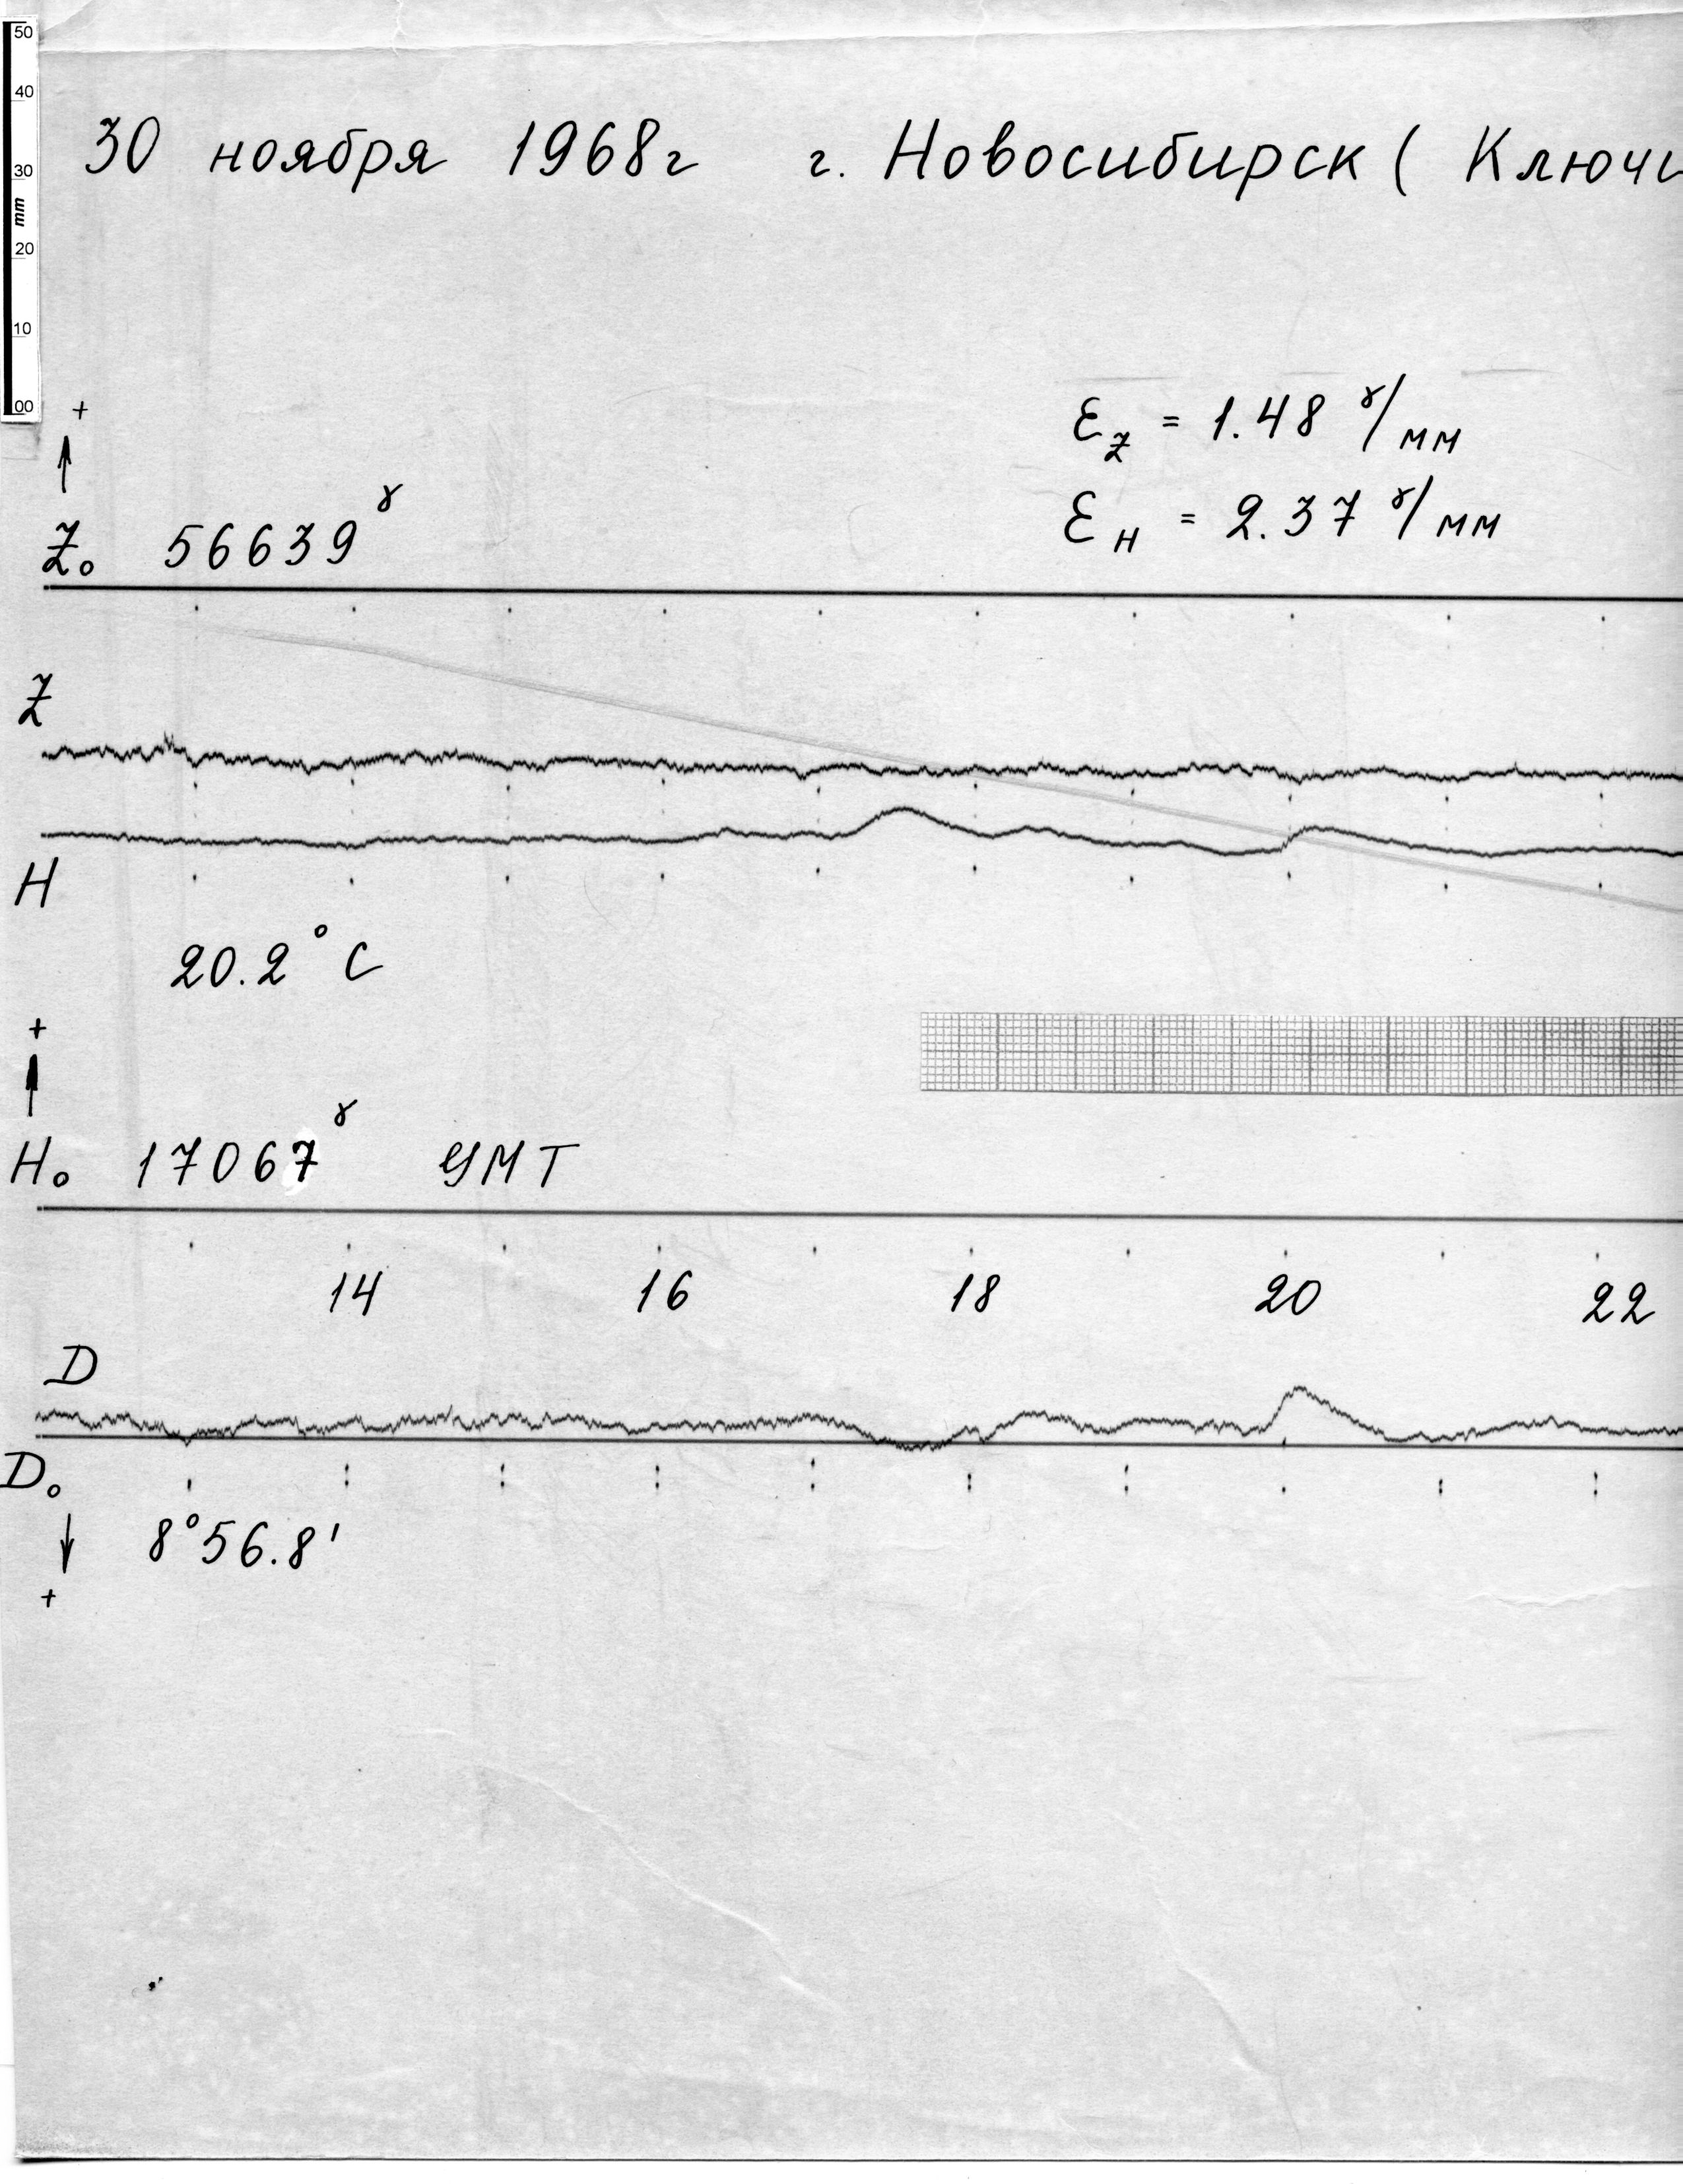 50
40
30
mm
20
10
00
30 ноября 1968г г. Новосибирск ( Ключи
+
εz = 1.48 γ/мм
εH = 2.37 γ/мм
Z₀ 56639γ
Z
H
20.2° C
+
H₀ 17067γ УМТ
14 16 18 20 22
D
D₀
8°56.8'
+